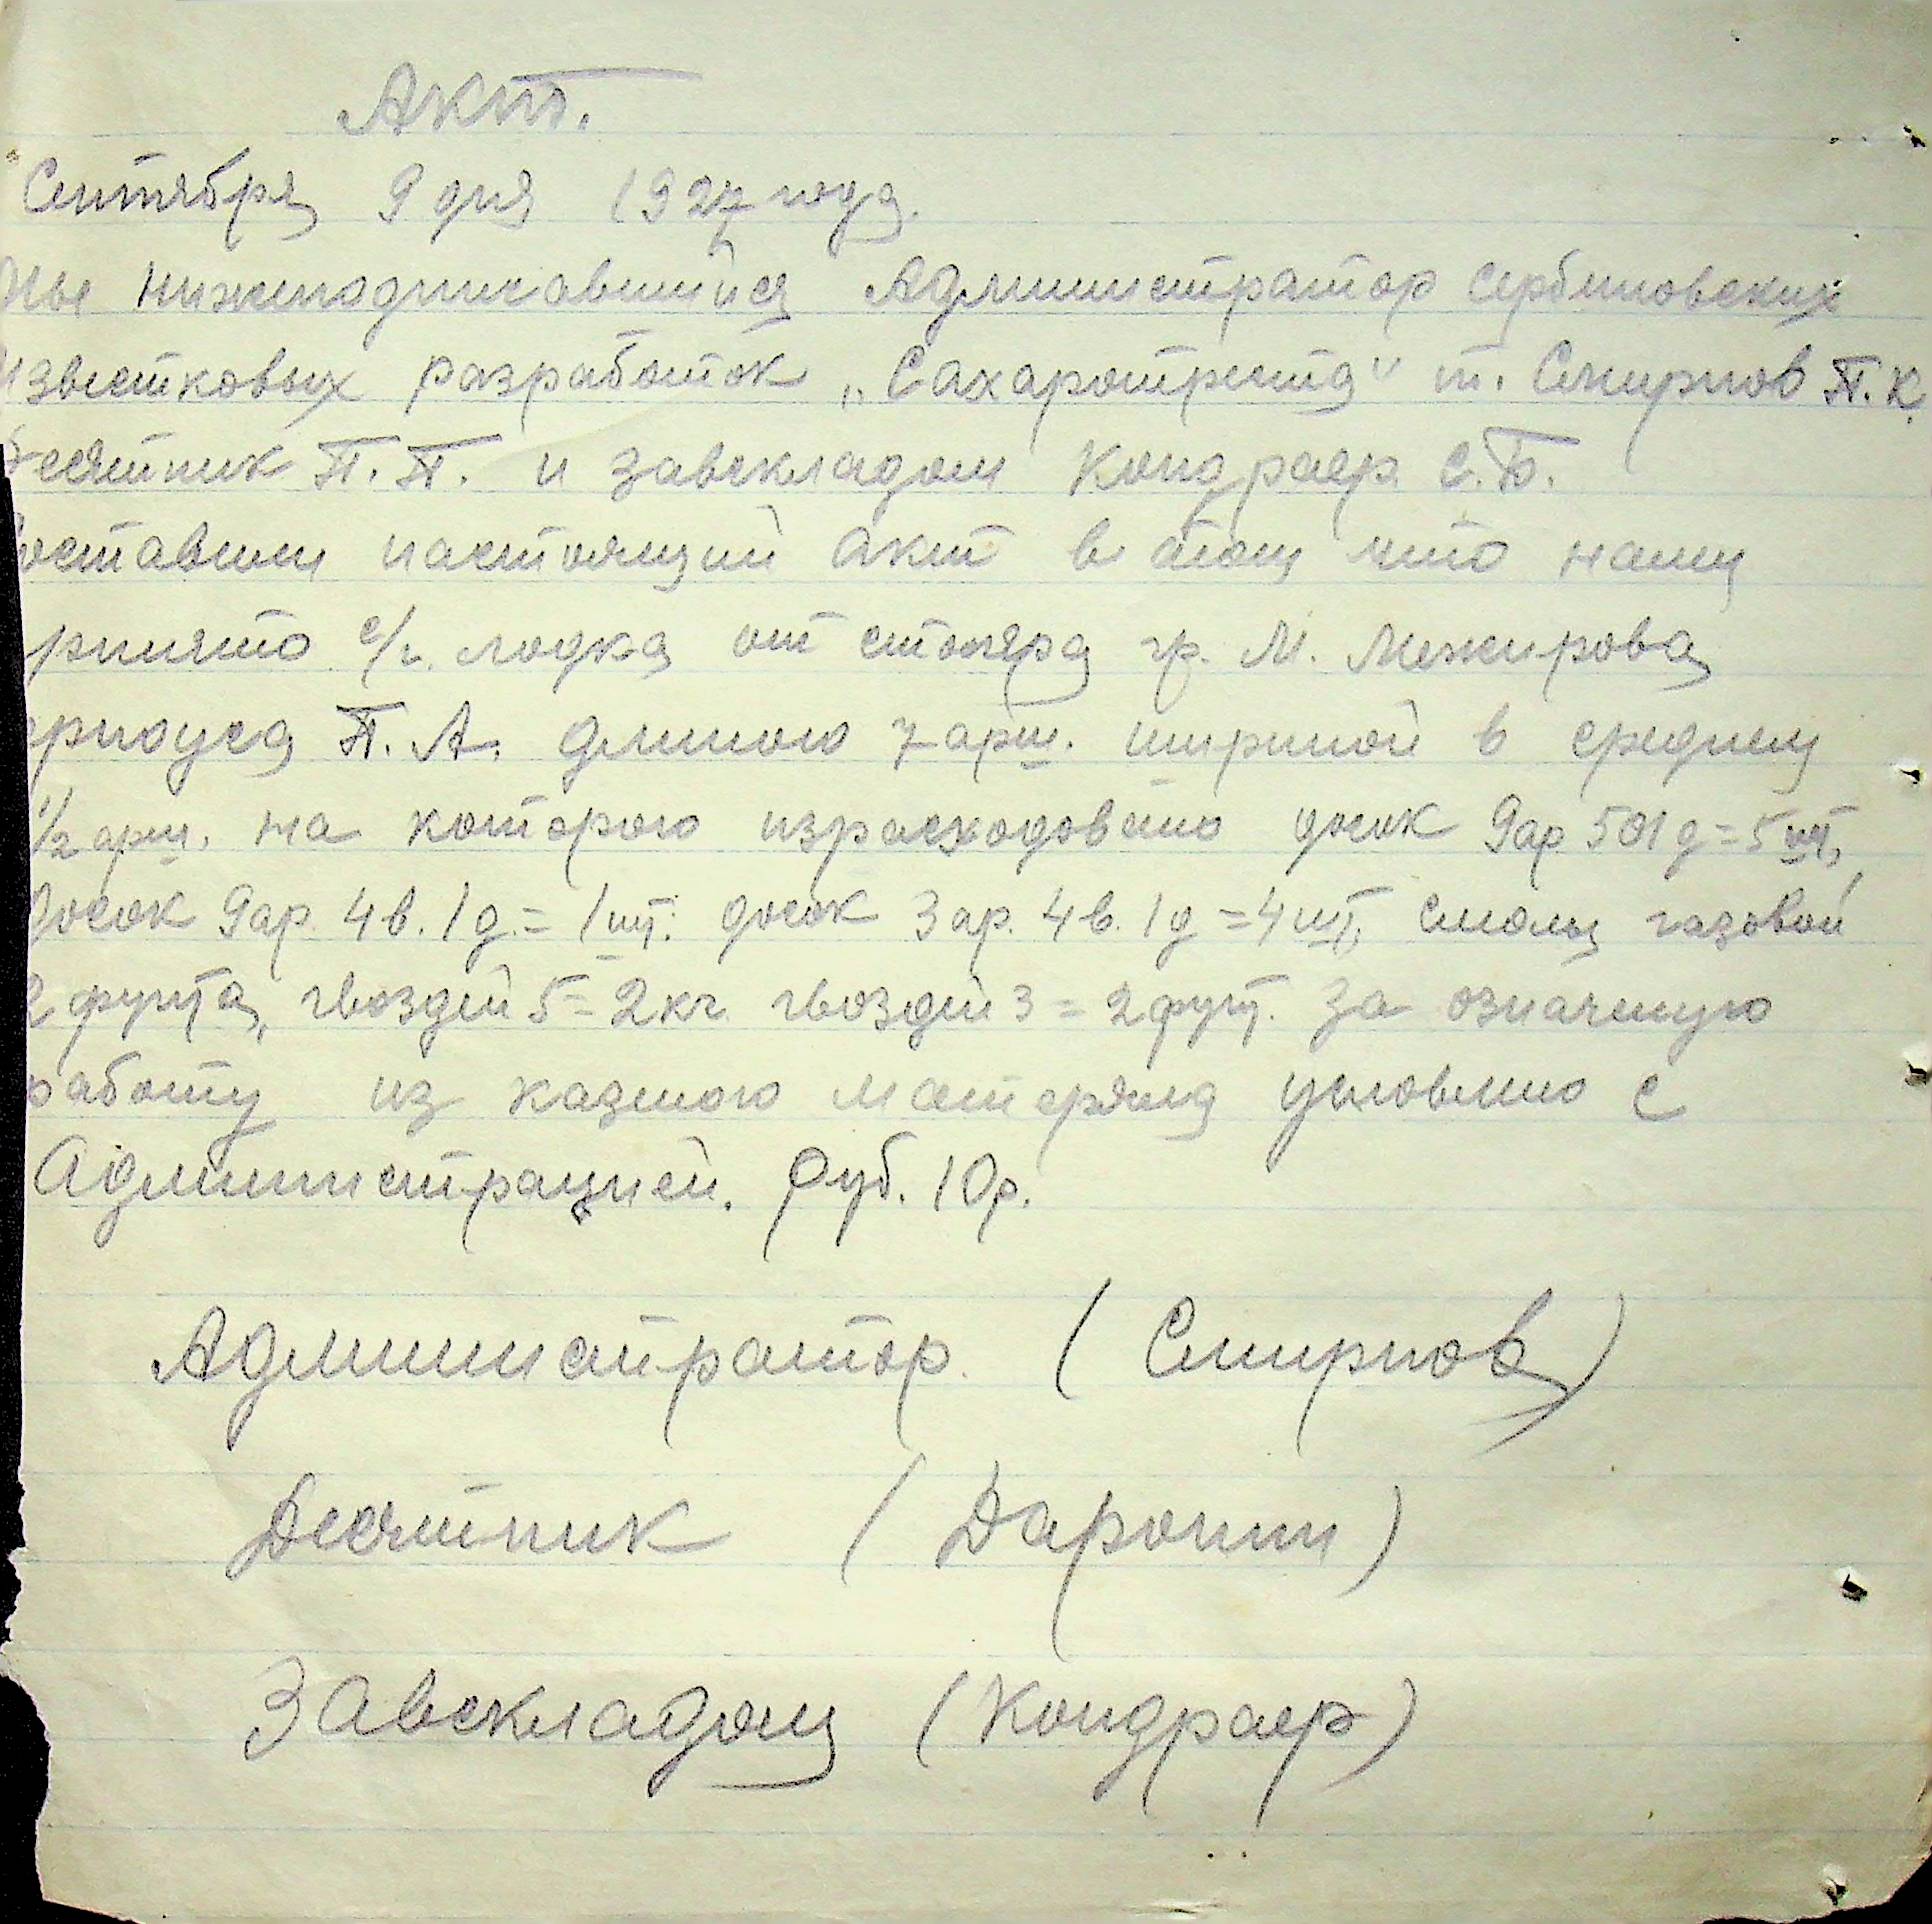 Акт.
Сентября 9 дня 1927 года.
Мы нижеподписавшийся Администратор Сербиновских
известковых разработок „Сахаротреста" т. Смирнов П.К.
Десятник П.П. и завскладом Кондраер С.Б.
составили настоящий акт в том что нами
принято с/г. лодка от столяра гр. М. Межирова
П. А. длиною 7 арш. шириной в среднем
1/2 арш. на которою израсходовано досок 9 ар 5 в 1 д = 5 шт,
досок 9 ар. 4 в. 1 д. = 1 шт. досок 3 ар. 4 в. 1 д = 4 шт, смолы газовой
2 фунта, гвоздей 5 = 2 кг. гвоздей 3 = 2 фунт. за означеную
работу из казеного матеряла условлено с
Администрацией. Руб. 10 р.
Администратор (Смирнов)
Десятник (Даронин)
Завскладом (Кондраер)